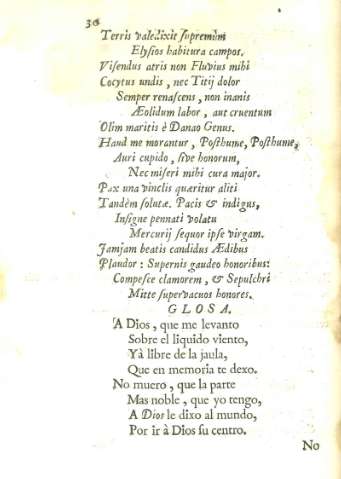 30
Terris valedixit supremùm
Elysios habitura campos.
Visendus atris non Fluvius mihi
Cocytus undis, nec Titij dolor
Semper renascens, non inanis
Æolidum labor, aut cruentum
Olim maritis è Danao Genus.
Haud me morantur, Posthume, Posthume,
Auri cupido, sive honorum,
Nec miseri mihi cura major.
Pax una vinclis quæritur aliti
Tandèm solutæ. Pacis & indigus,
Insigne pennati volatu
Mercurij sequor ipse virgam.
Jamjam beatis candidus Ædibus
Plaudor: Supernis gaudeo honoribus:
Compesce clamorem, & Sepulchri
Mitte supervacuos honores.
GLOSA.
A Dios, que me levanto
Sobre el liquido viento,
Yà libre de la jaula,
Que en memoria te dexo.
No muero, que la parte
Mas noble, que yo tengo,
A Dios le dixo al mundo,
Por ir à Dios su centro.
No